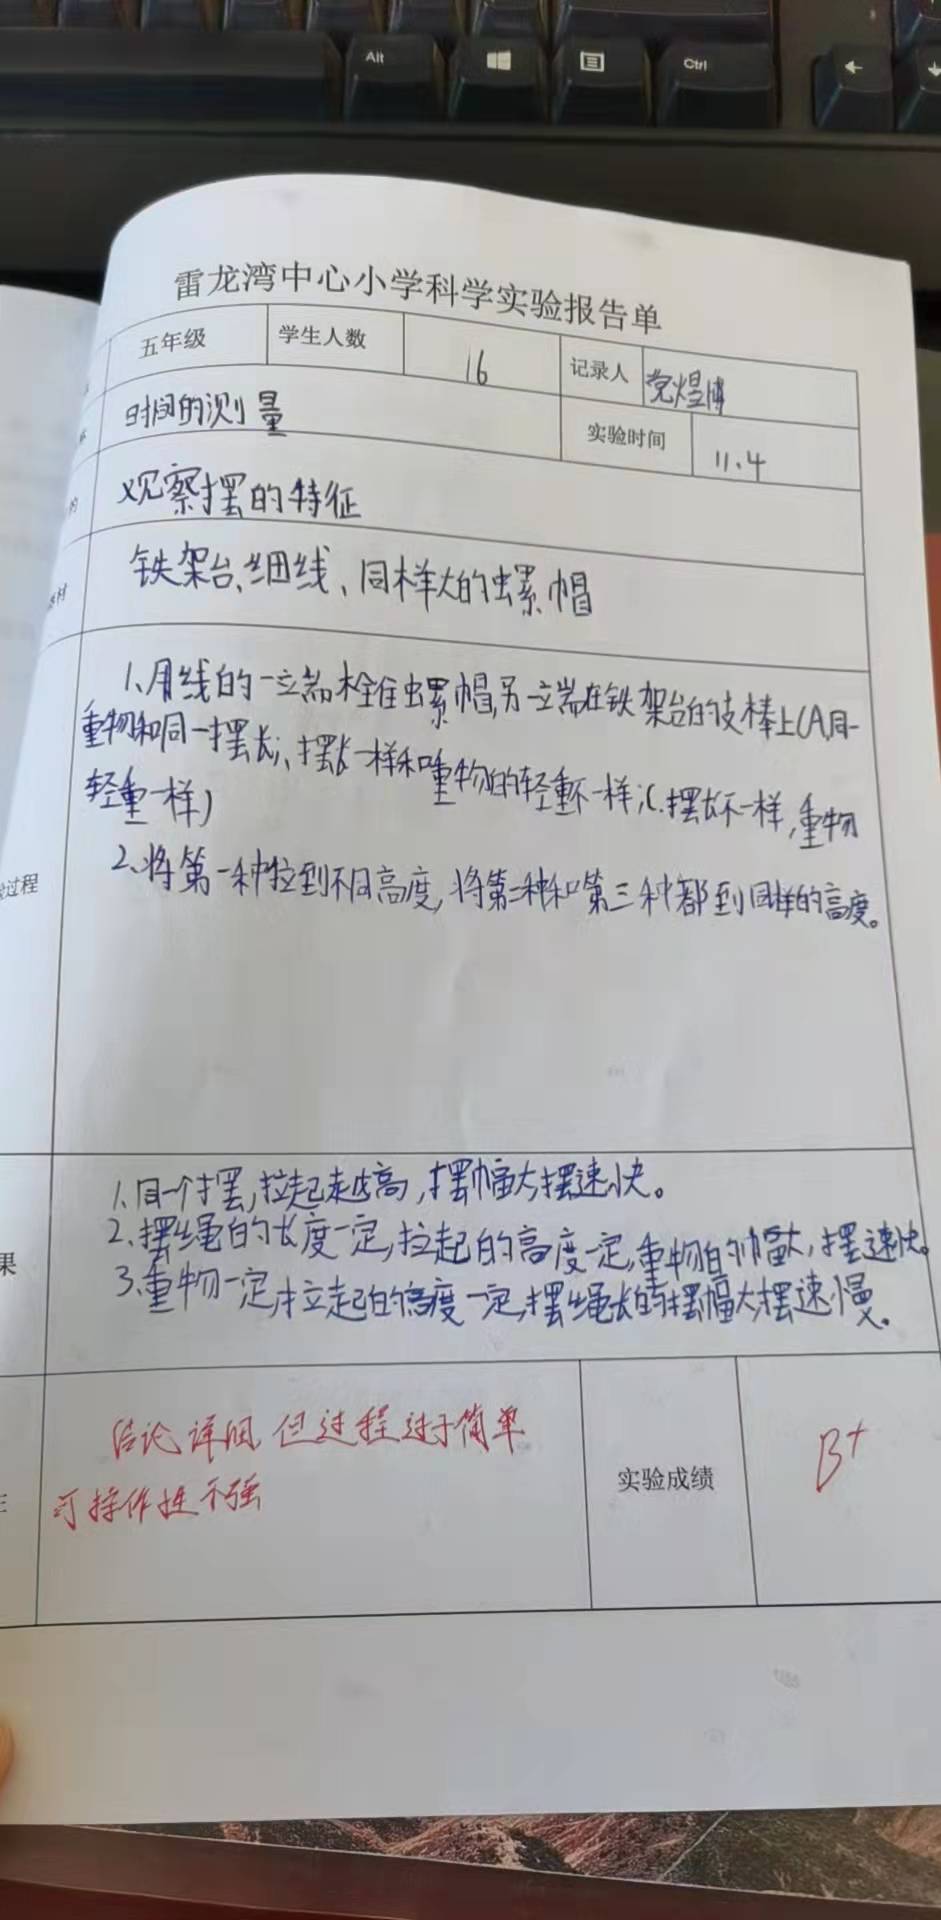 Alt
Ctrl
雷龙湾中心小学科学实验报告单
五年级 学生人数 16 记录人 党煜博
时间的测量 实验时间 11.4
的 观察摆的特征
材 铁架台、细线、同样大的螺帽
1、用线的一立端栓住螺帽,另一立端在铁架台的支棒上(A.同一
重物和同一摆长;、摆长一样和重物的轻重不一样;C.摆长不一样,重物
轻重一样)
过程 2、将第一种拉到不同高度,将第二种和第三种都到同样的高度。
1、同一个摆,拉起越高,摆幅大摆速快。
2、摆绳的长度一定,拉起的高度一定,重物的幅大,摆速快。
果 3、重物一定,拉起的高度一定,摆绳长的摆幅大,摆速慢。
结论详细,但过程过于简单
可操作性不强
实验成绩 B+